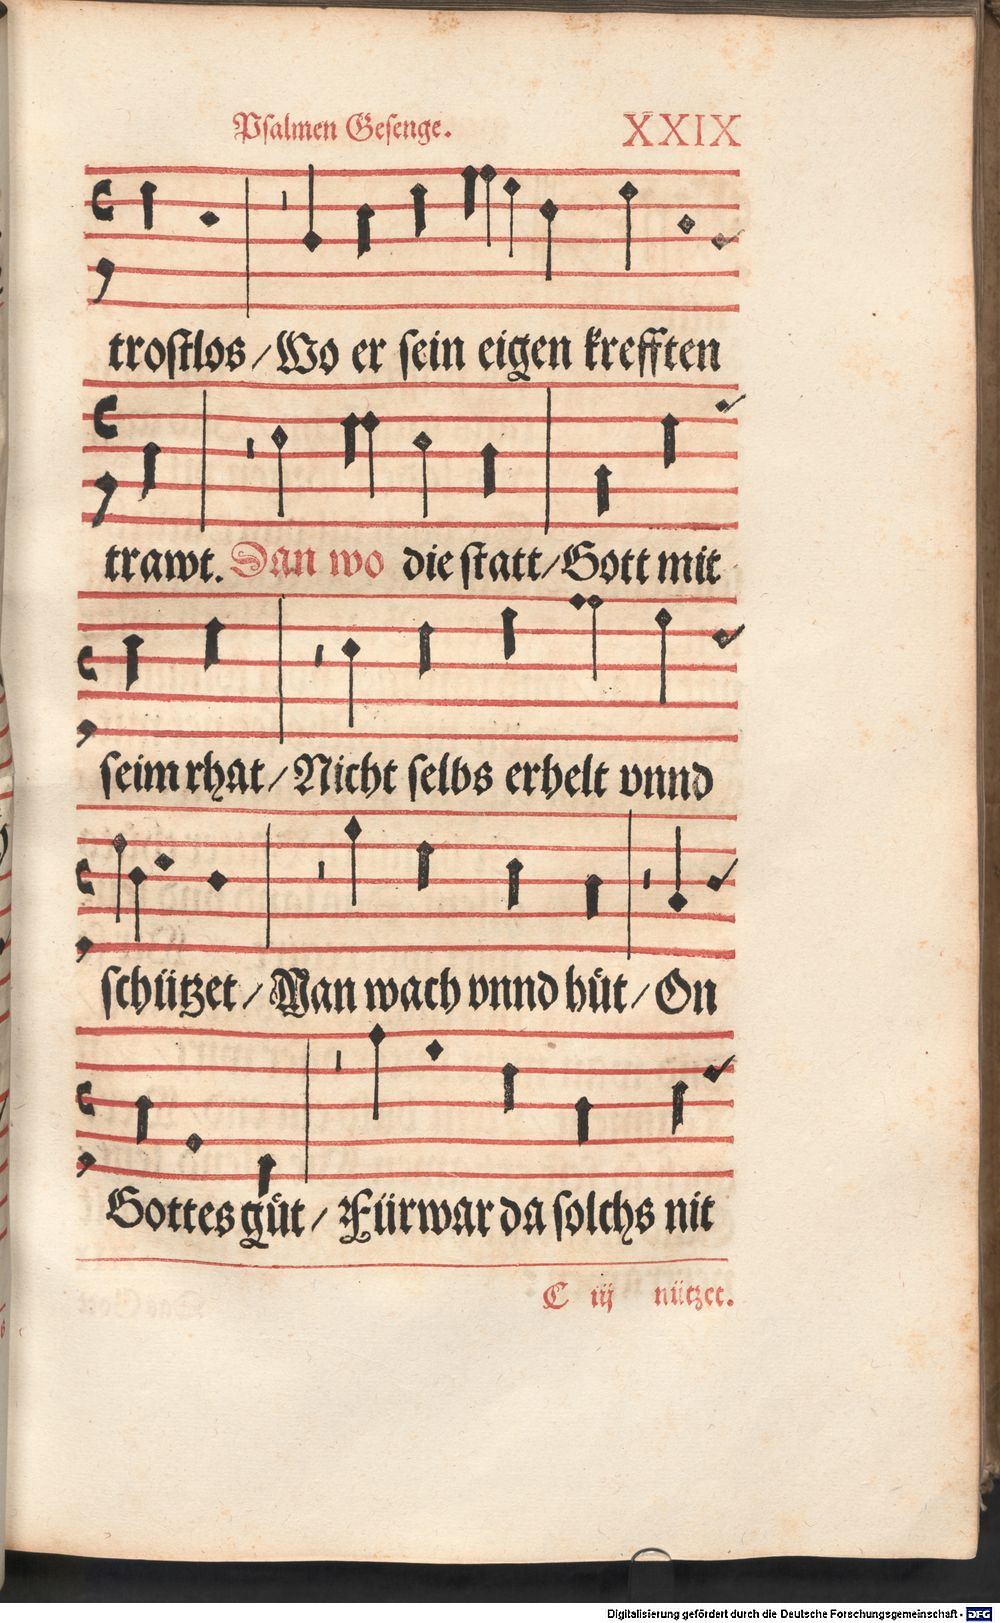 Psalmen Gesenge. XXIX
trostlos / Wo er sein eigen krefften
trawt. Dan wo die statt / Gott mit
seim rhat / Nicht selbs erhelt vnnd
schützet / Man wach vnnd hüt / On
Gottes güt / Fürwar da solchs nit
C iij nützet.
Digitalisierung gefördert durch die Deutsche Forschungsgemeinschaft - DFG